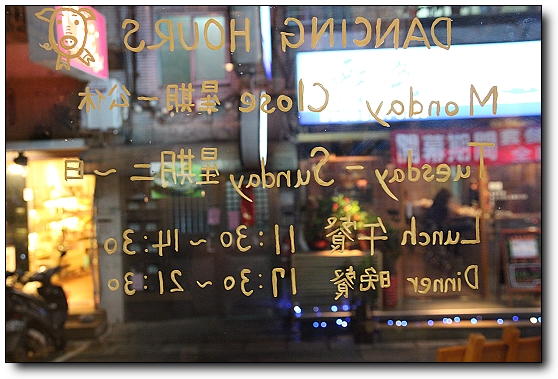 DANCING HOURS
Monday Close 星期一公休
Tuesday - Sunday 星期二~日
Lunch 午餐 11:30~14:30
Dinner 晚餐 17:30~21:30